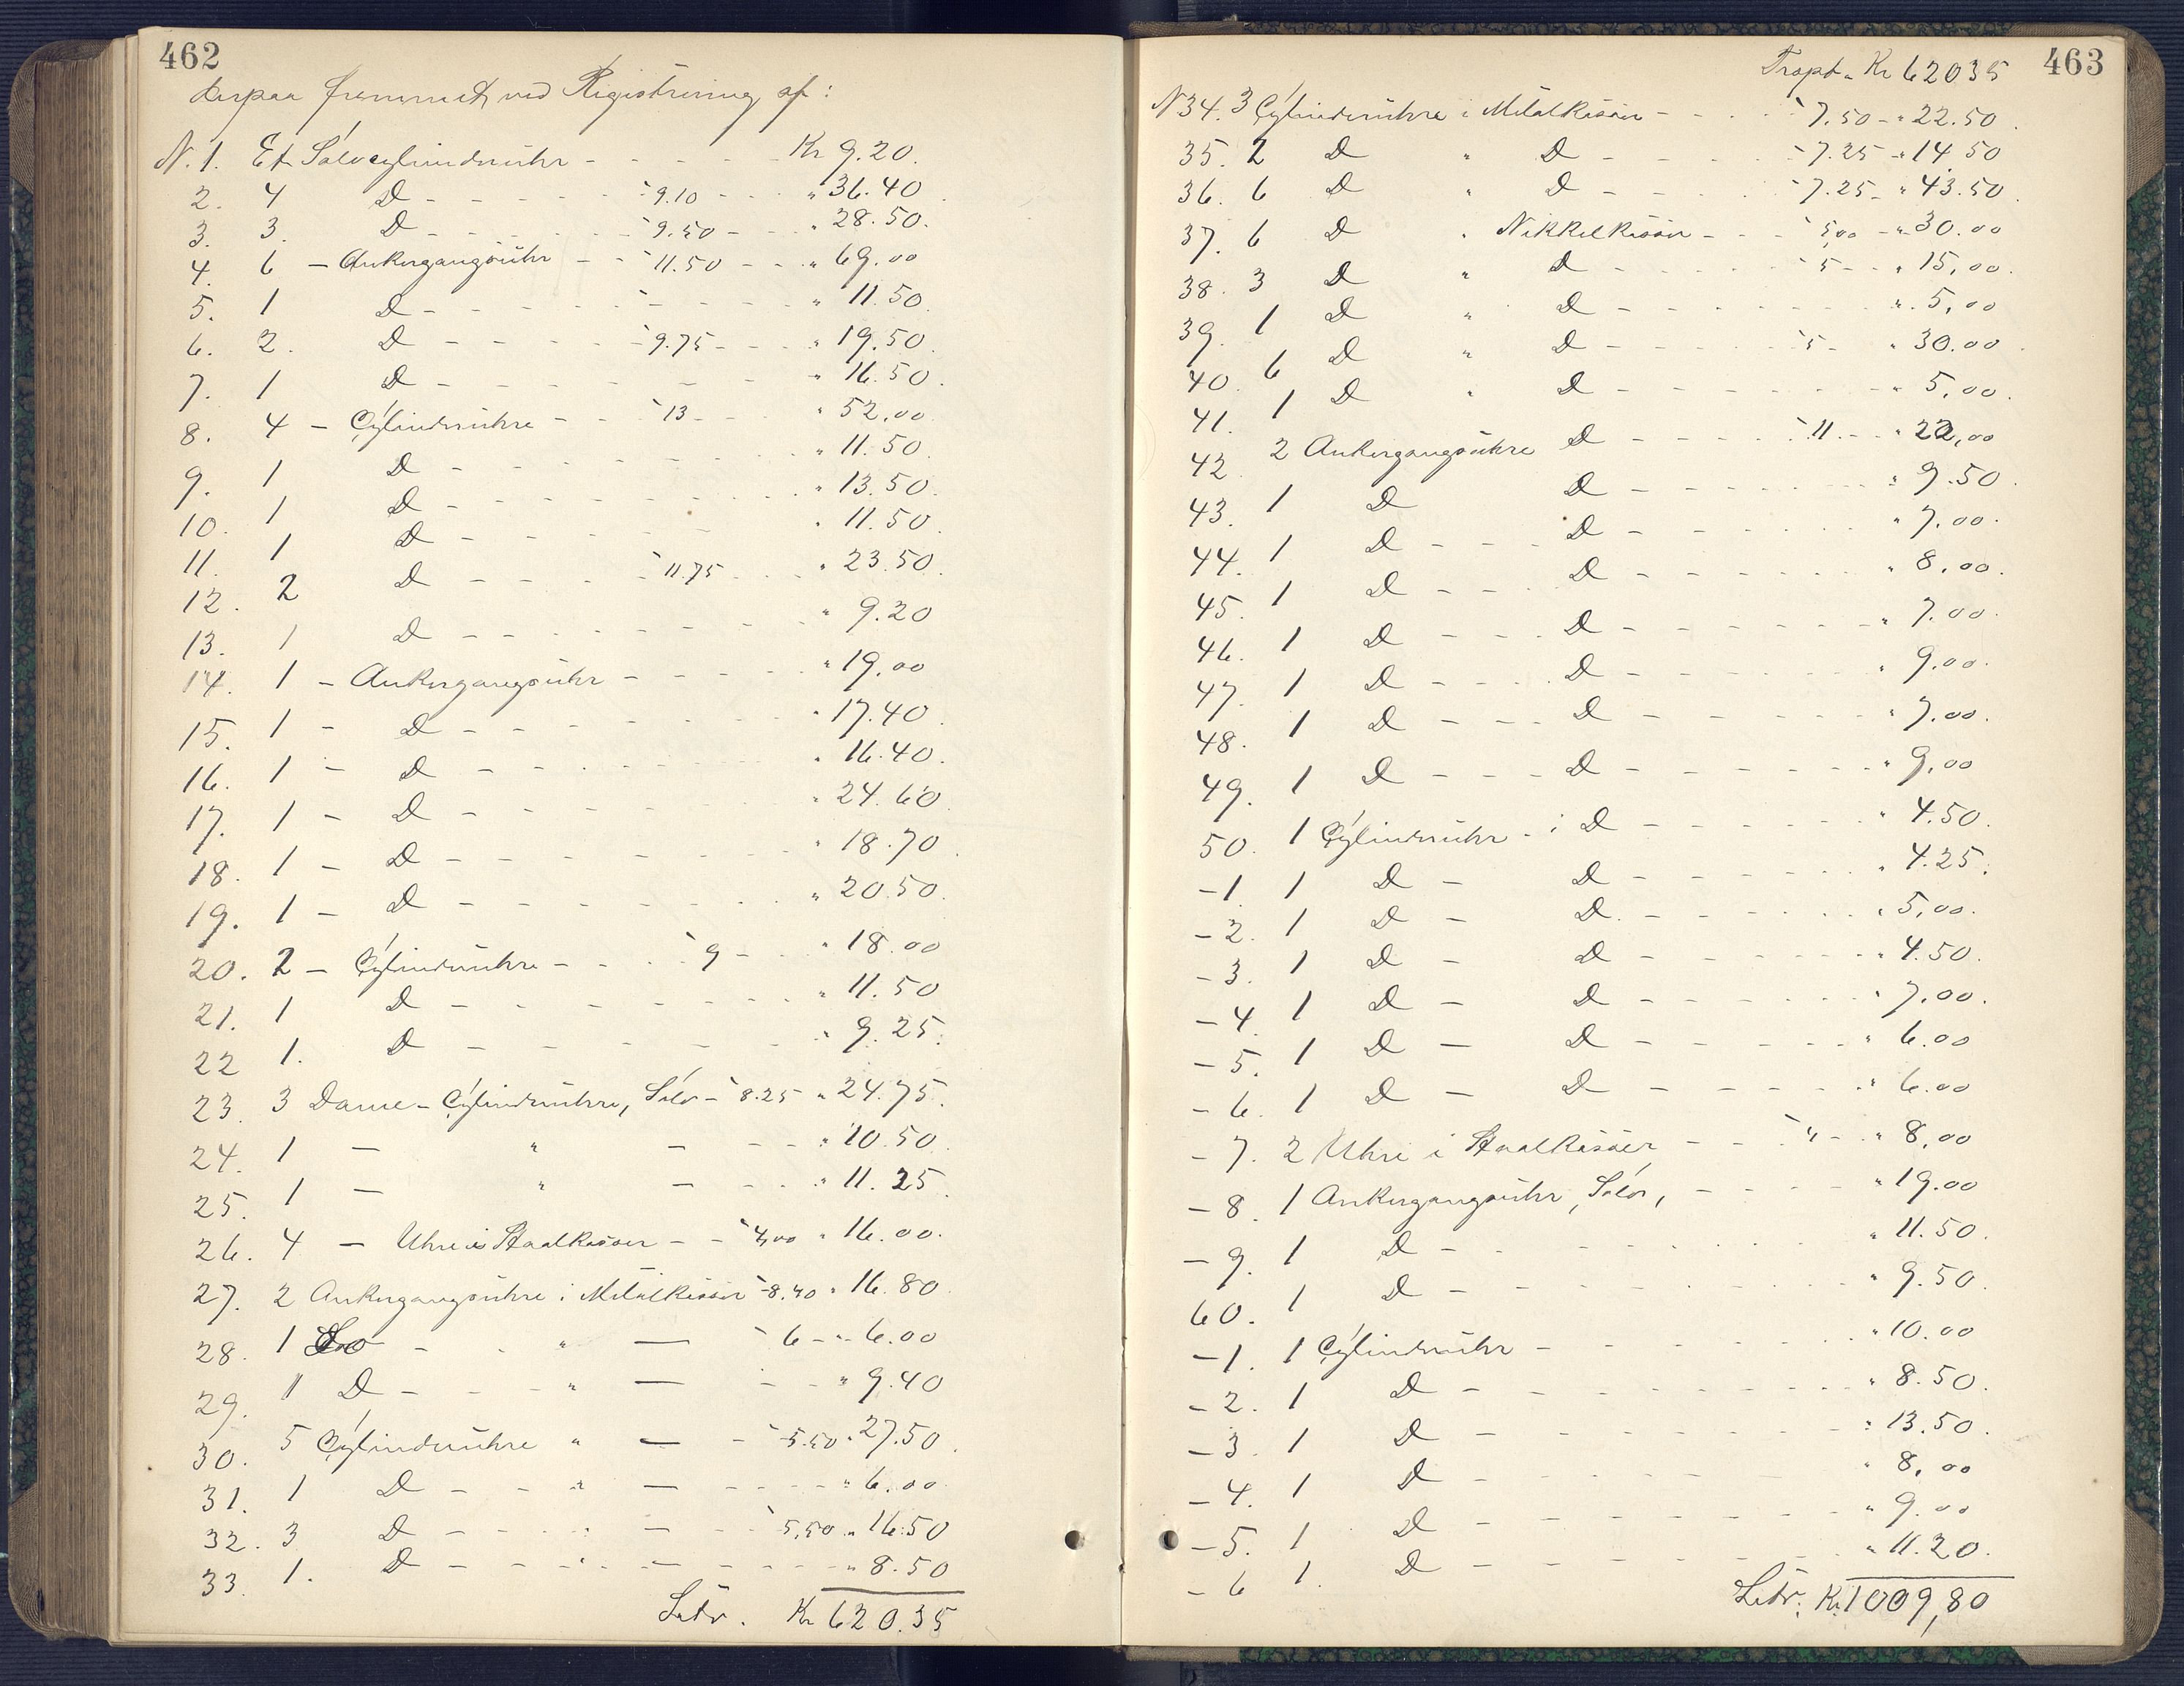 462
derpaa fremmet ved Registrering af:
N. 1. Et Sølvcylinderuhr - - - - - Kr 9.20.
2. 4 D - - - - - " 9.10 - - " 36.40
3. 3. D - - - - - " 9.50 - " 28.50.
4. 6 - Ankergangsuhr - - " 11.50 - - " 69.00
5. 1 D - - - - - - - " 11.50.
6. 2. D - - - - " 9.75 - - " 19.50
7. 1 D - - - - - - " 16.50.
8. 4 - Cylinderuhre - - " 13 - - " 52.00
9. 1 D - - - - - " 11.50.
10. 1 D - - - - - " 13.50.
11. 1 D - - - - - " 11.50
12. 2 D - - - - " 11.75 - - " 23.50.
13. 1 D - - - - - - " 9.20
14. 1 - Ankergangsuhr - - - - " 19.00
15. 1 - D - - - - - " 17.40
16. 1 - D - - - - - " 16.40.
17. 1 - D - - - - - " 24.60
18. 1 - D - - - - - " 18.70.
19. 1 - D - - - - - " 20.50.
20. 2 - Cylinderuhre - - " 9 - " 18.00
21. 1 D - - - - - " 11.50
22 1. D - - - - - " 9.25.
23. 3 Dame-Cylinderuhre, Sølv - " 8.25 " 24.75.
24. 1 - " - - - - " 10.50.
25. 1 - " - - - - " 11.25.
26. 4 - Uhre i Staalkasser - - " 4,00 " 16.00.
27. 2 Ankergangsuhre i Metalkasser " 8.40 " 16.80
28. 1 Do - - " - " 6 - " 6.00
29. 1 D - - - " - - - " 9.40
30. 5 Cylinderuhre " - - " 5.50 " 27.50.
31. 1 D - - " - - - - " 6.00
32. 3 D - - - " - - " 5,50 " 16.50
33. 1. D - - - " - - - - " 8.50
Latr. Kr 620.35
463
Trspt. Kr 62035
N 34. 3 Cylinderuhre i Metalkasser - - " 7.50 - " 22.50.
35. 2 D " D - - - " 7.25 - " 14.50
36. 6 D " D - - - " 7.25 - " 43.50.
37. 6 D " Nikkelkasser - - " 5,00 - " 30.00
38. 3 D " D - - - " 5 - - " 15,00.
39. 1 D " D - - - - - " 5,00
40. 6 D " D - - - " 5 - " 30.00.
41. 1 D " D - - - - - " 5,00.
42. 2 Ankergangsuhre D - - - " 11. - - " 22,00
43. 1 D D - - - - - " 9.50.
44. 1 D - - - D - - - - - " 7,00.
45. 1 D - - - D - - - - - " 8,00.
46. 1 D - - - D - - - - - " 7.00.
47. 1 D - - - D - - - - - " 9.00.
48. 1 D - - - D - - - - - " 7.00.
49. 1 D - - - D - - - - - " 9,00
50. 1 Cylinderuhr - i D - - - - - " 4.50.
-1. 1 D - D - - - - - " 4.25.
-2. 1 D - D. - - - - - " 5,00.
-3. 1 D - D - - - - - " 4.50.
-4. 1 D - D - - - - - " 7,00.
-5. 1 D - D - - - - - " 6.00
-6. 1 D - D - - - - - " 6.00
-7. 2 Uhre i Staalkasser - - " 4 - " 8,00
-8. 1 Ankergangsuhr, Sølv, - - - - " 19.00
-9. 1 D - - - - - - " 11.50.
60. 1 D - - - - - - " 9.50.
-1. 1 Cylinderuhr - - - - - " 10.00
-2. 1 D - - - - - - " 8.50.
-3. 1 D - - - - - - " 13.50.
-4. 1 D - - - - - - " 8,00
-5. 1 D - - - - - - " 9.00
-6 1. D - - - - - - " 11.20.
Latr: Kr 1009,80